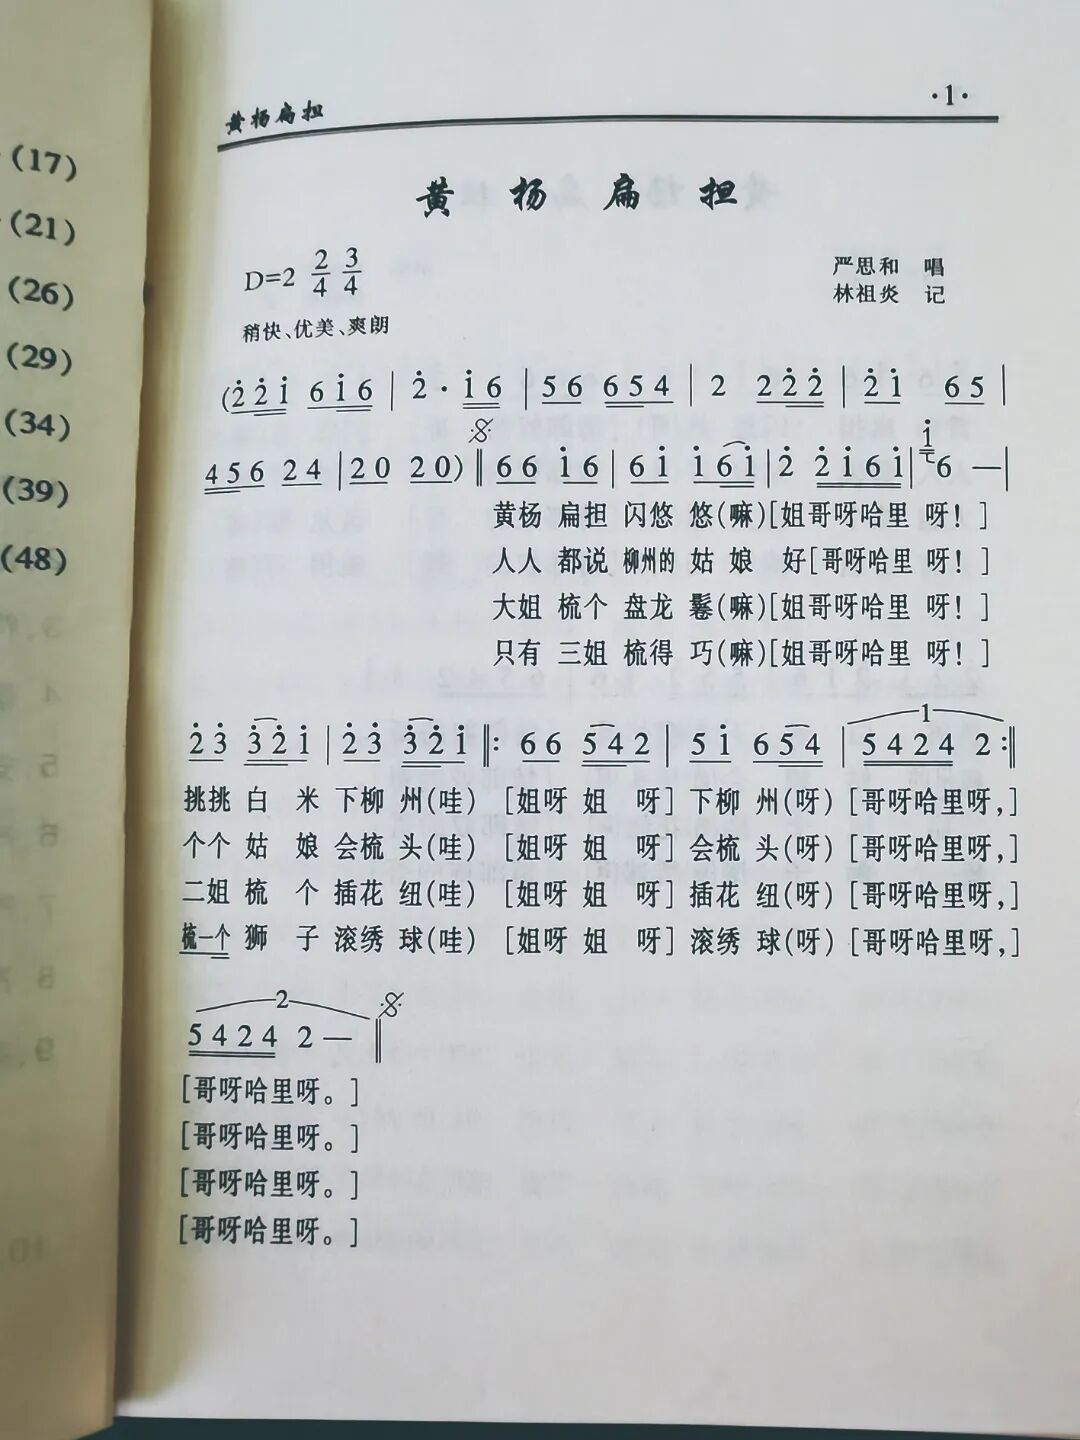 (17)
(21)
(26)
(29)
(34)
(39)
(48)
黄杨扁担
·1·
黄杨扁担
D=2 2/4 3/4
严思和 唱
林祖炎 记
稍快、优美、爽朗
(2̇ 2̇ 1̇ 6 1̇ 6 | 2̇ · 1̇ 6 | 5 6 6 5 4 | 2 2 2̇ 2̇ | 2̇ 1̇ 6 5 |
4 5 6 2 4 | 2 0 2 0) ‖ 6 6 1̇ 6 | 6 1̇ 1̇ 6 1̇ | 2̇ 2̇ 1̇ 6 1̇ | 1̇ 6 — |
黄杨 扁担 闪悠 悠(嘛)[姐哥呀哈里 呀！]
人人 都说 柳州的 姑 娘 好[哥呀哈里 呀！]
大姐 梳个 盘龙 鬈(嘛)[姐哥呀哈里 呀！]
只有 三姐 梳得 巧(嘛)[姐哥呀哈里 呀！]
2̇ 3̇ 3̇ 2̇ 1̇ | 2̇ 3̇ 3̇ 2̇ 1̇ ‖: 6 6 5 4 2 | 5 1̇ 6 5 4 | 1 5 4 2 4 2 :‖
挑挑 白 米 下柳 州(哇) [姐呀 姐 呀] 下柳 州(呀) [哥呀哈里呀，]
个个 姑 娘 会梳 头(哇) [姐呀 姐 呀] 会梳 头(呀) [哥呀哈里呀，]
二姐 梳 个 插花 纽(哇) [姐呀 姐 呀] 插花 纽(呀) [哥呀哈里呀，]
梳一个 狮 子 滚绣 球(哇) [姐呀 姐 呀] 滚绣 球(呀) [哥呀哈里呀，]
2
5 4 2 4 2 — ‖
[哥呀哈里呀。]
[哥呀哈里呀。]
[哥呀哈里呀。]
[哥呀哈里呀。]